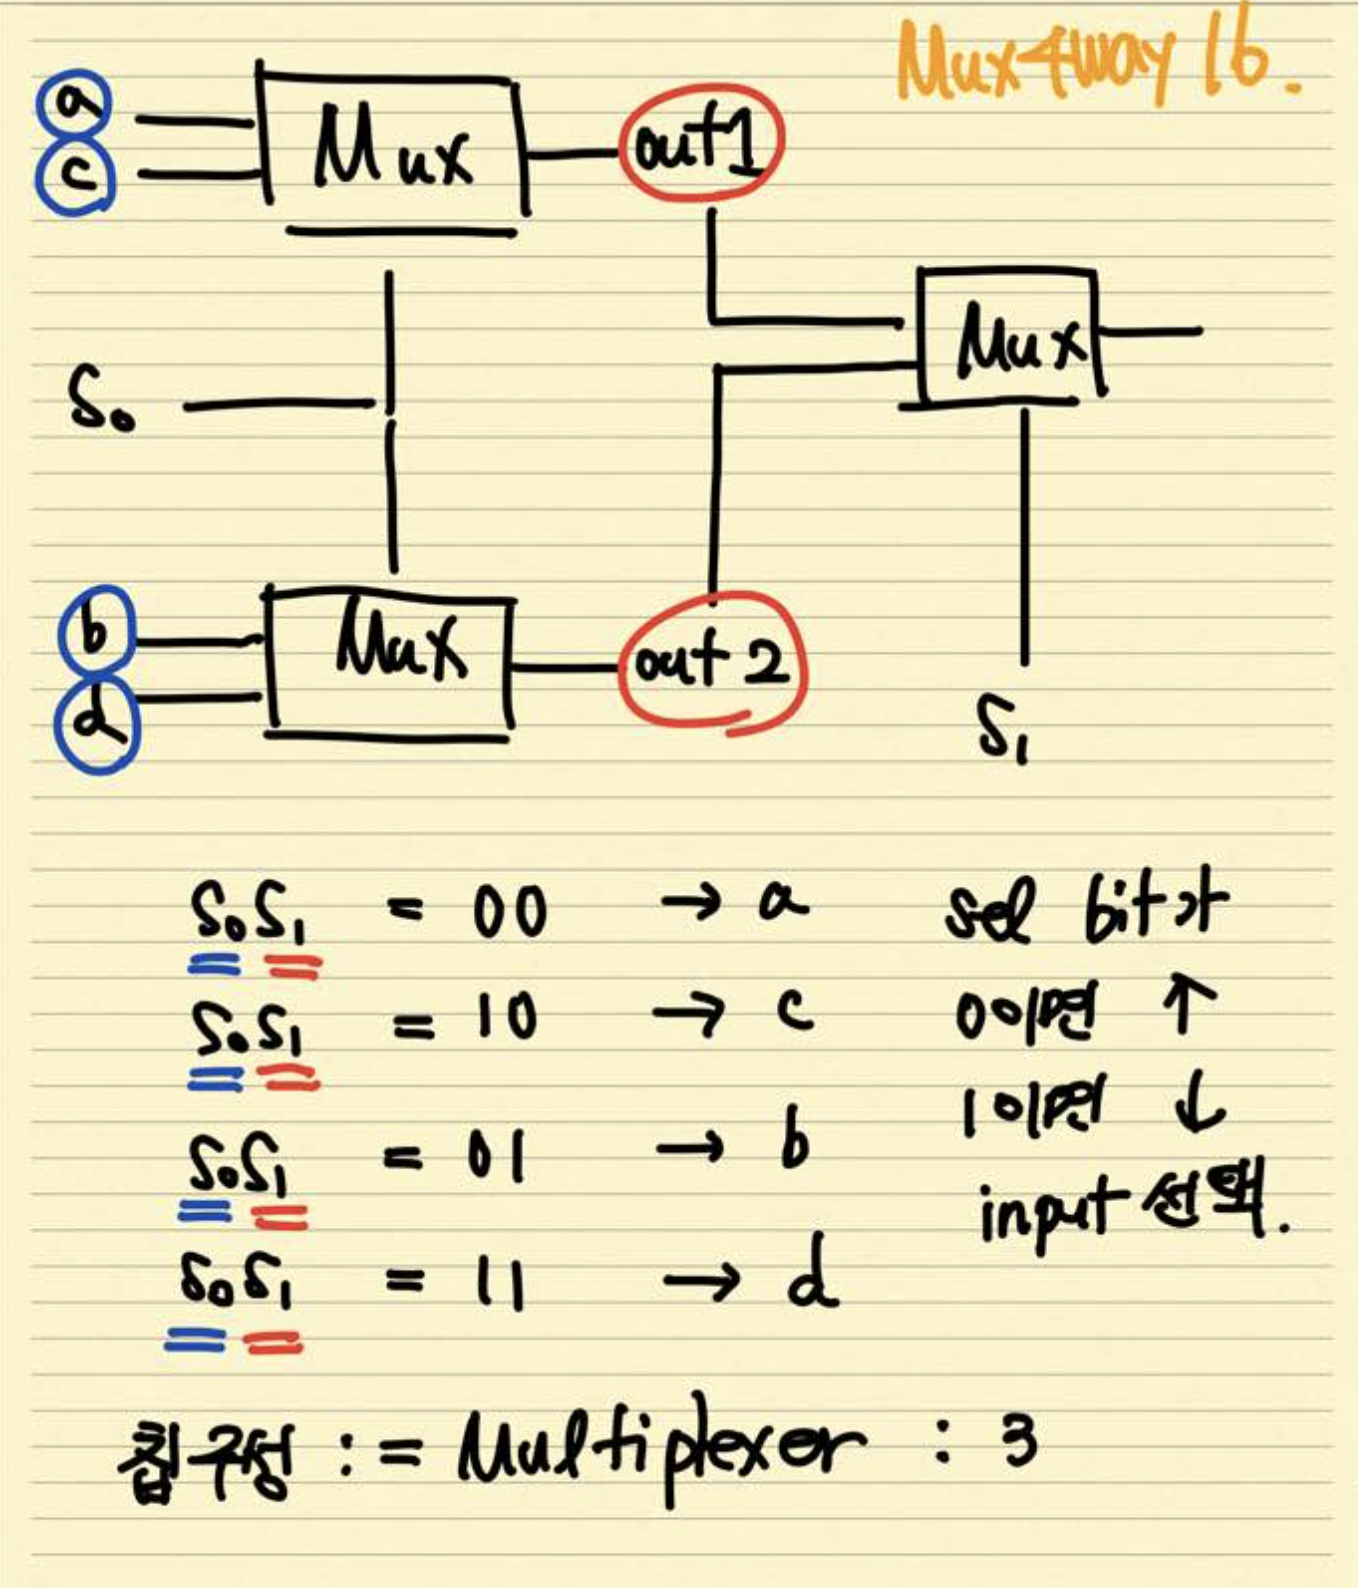 Mux4way 16.
a
c
Mux
out1
Mux
S₀
b
d
Mux
out 2
S₁
S₀S₁ = 00 → a
S₀S₁ = 10 → c
S₀S₁ = 01 → b
S₀S₁ = 11 → d
sel bit가
0이면 ↑
1이면 ↓
input 선택.
칩구성 := Multiplexer : 3